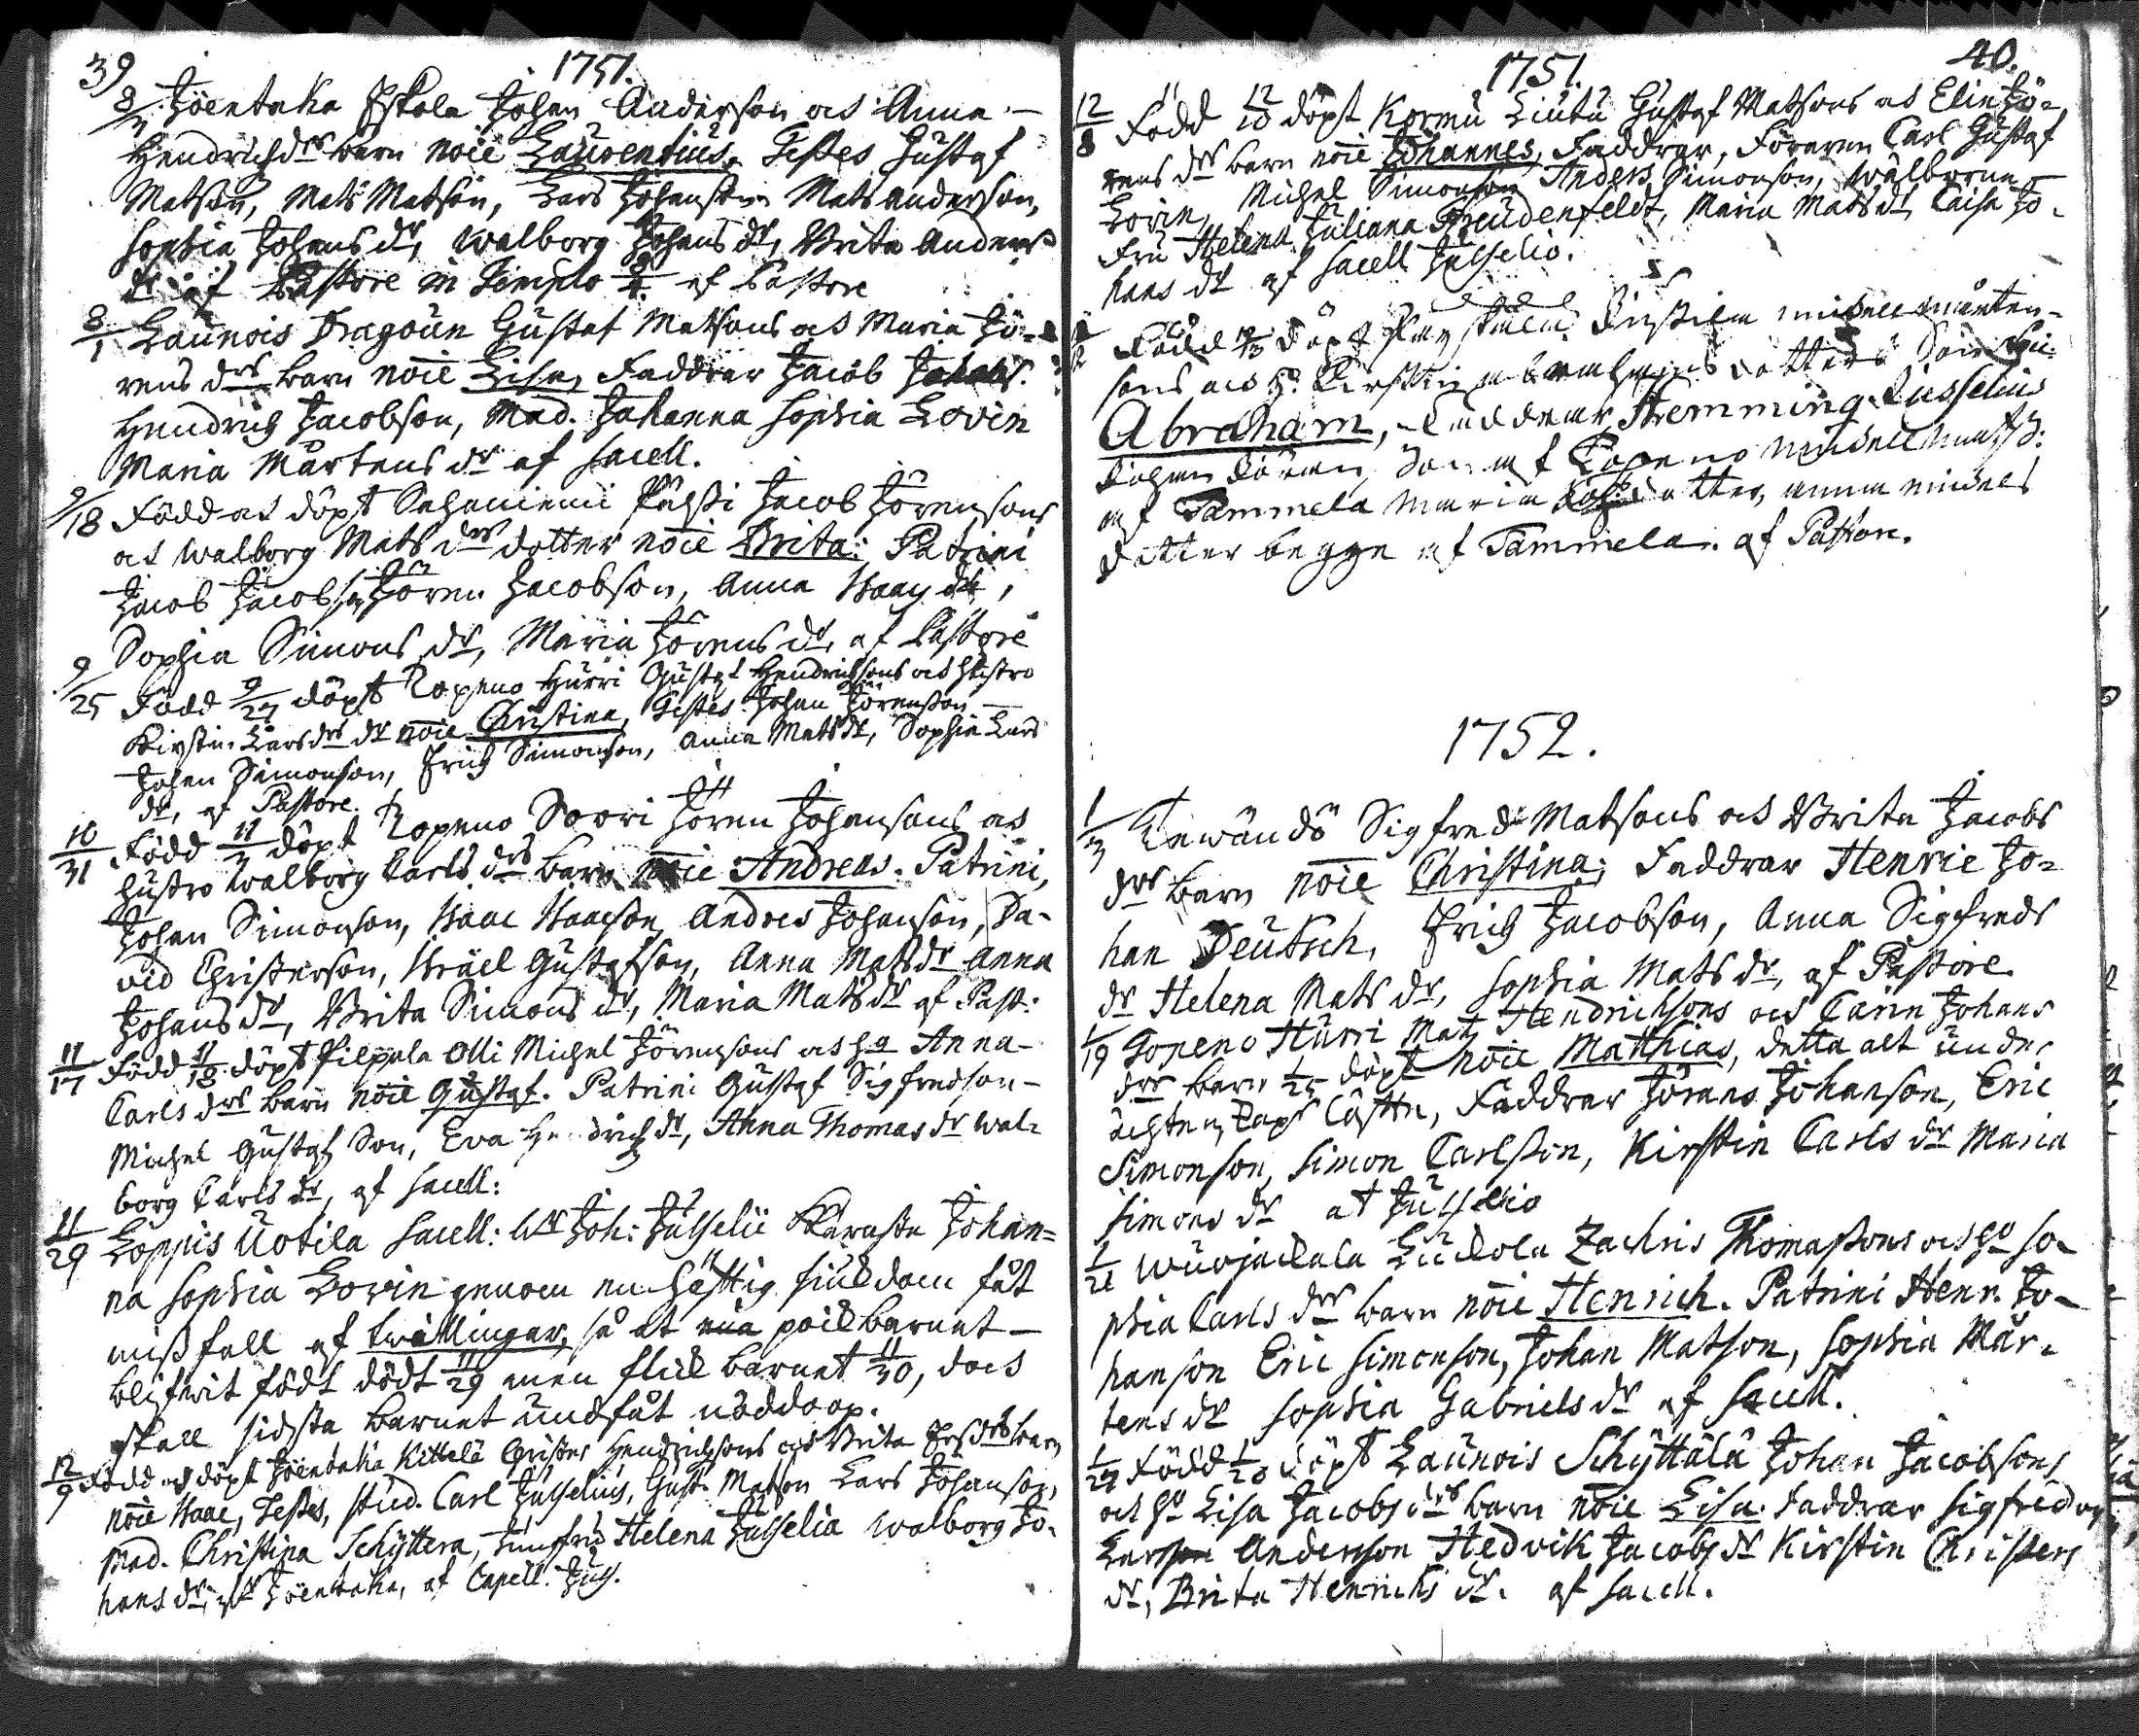 39
1751.
8/7 Jöentaka Eskola Johan Anderson os Anna
Hendrichdrs barn noie Laurentius. Testes Gustaf
Matson, Mats Matson, Lars Johanson Mats Anderson,
Sophia Johans dr, Walborg Johans dr, Brita Anders
dr af Pastore in Templo af Pastore
8/1 Launois Dragoun Gustaf Matsons os Maria Jö-
rens drs barn noie Lisa, Faddrar Jacob Johans.
Hendrich Jacobson, Mad. Johanna Sophia Lovin
Maria Mårtens dr af sacell.
9/18 Född os döpt Sahaniemi Jacob Jörensons
os Walborg Mats drs dotter noie Brita. Patrini
Jacob Jacobson Jören Jacobson, Anna Isaac dr,
Sophia Simons dr, Maria Jörens dr, af Pastore
9/25 Född 9/27 döpt Topeno Hurri Gustaf Hendrichsons os hustro
Kirstin Lars drs dr noie Christina, Testes Johan Jörenson
Johan Simonson, Erich Simonson, Anna Mats dr, Sophia Lars
dr, af Pastore.
10/31 Född 11/3 döpt Topeno Sovri Jören Johansons os
hustro Walborg Carls drs barn noie Andreas. Patrini,
Johan Simonson, Isaac Isaacson, Andres Johanson, Da-
vid Christerson, Israel Gustafson, Anna Mats dr Anna
Johans dr, Brita Simons dr, Maria Mats dr af Past:
11/17 Född 11/18 döpt Pilpala Olli Michel Jörensons os ha Anna
Carls drs barn noie Gustaf. Patrini Gustaf Sigfredson
Michel Gustaf Son, Eva Hendrich dr, Anna Thomas dr Wal-
borg Carls dr, af sacell:
11/29 Loppis Uotila sacell: Joh: Juhselii Kärasta Johan=
na Sophia Lovin genom en häfftig siukdom fåt
missfall af twillingar, så at poickbarnet
blifwit födt dödt 11/29 men flick barnet 11/30, docs
skall sidsta barnet undfåt nöddop.
12/9 Född os döpt Jöentaka Kittelä Christer Hendrichsons os Brita drs barn
noie Isaac, Testes, stud. Carl Juhselius, Gust. Matson Lars Johanson,
Mad. Christina Schyttera, Jungfru Helena Juhselia Walborg Jo-
hans dr, Jöentaka, af Capell. Juhs.
1751.
40.
12/8 Född 12/10 döpt Kormu Liutu Gustaf Matsons os Elin Jö-
rens drs barn noie Johannes, Faddrar, Föraren Carl Gustaf
Lovin, Michel Simonson Anders Simonson, Wälborne
Fru Helena Juliana Freudenfeldt, Maria Mats dr, Caisa Jo-
hans dr af sacell Juhselio.
Född döpt mårten-
sons os h: Kirstin dotters Son
Abraham, Faddrar, Flemming Jusselius
Johan Jören Son af Topeno
af Tammela Maria dotter, Anna
dotter begge af Tammela. af Pastore.
1752.
1/3 Lawändö Sigfred Matsons os Brita Jacobs
drs barn noie Christina; Faddrar Henric Jo=
han Deutsch, Erich Jacobson, Anna Sigfreds
dr Helena Mats dr, Sophia Mats dr, af Pastore.
1/19 Topeno Hurri Mats Hendrichsons os Carin Johans
drs barn 1/25 döpt noie Matthias, detta alt under
ächten, Faddrar Jörans Johanson, Eric
Simonson, Simon Carlson, Kirstin Carls dr Maria
Simons dr at Juhselio
1/21 Wuojackala Luckola Zachris Thomasons os ho So-
phia Carls drs barn noie Henrich. Patrini Henr. Jo-
hanson Eric Simonson, Johan Matson, Sophia Mår-
tens dr Sophia Gabriels dr af Sacell.
1/27 Född 1/28 döpt Launois Schyttälä Johan Jacobsons
os ho Lisa Jacobs drs barn noie Lisa. Faddrar Sigfred
Larson Anderson Hedvik Jacobs dr Kirstin Christers
dr, Brita Henrichs dr. af sacell.